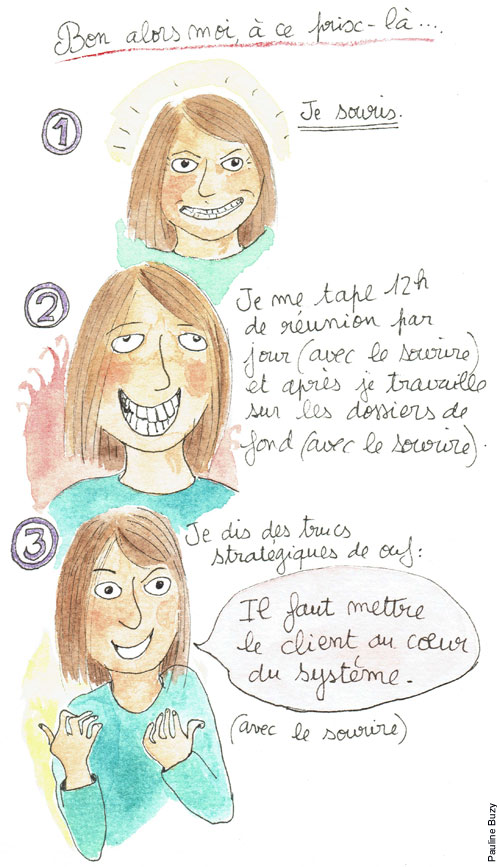 Bon alors moi, à ce prix-là....
1
Je souris.
2
Je me tape 12h
de réunion par
jour (avec le sourire)
et après je travaille
sur les dossiers de
fond (avec le sourire).
3
Je dis des trucs
stratégiques de ouf :
Il faut mettre
le client au cœur
du système.
(avec le sourire)
Pauline Buzy